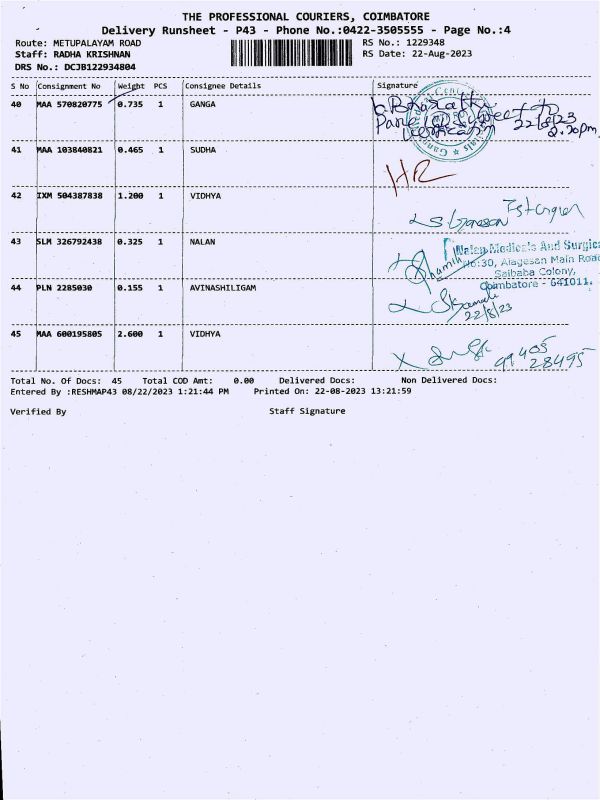 THE PROFESSIONAL COURIERS, COIMBATORE
Delivery Runsheet - P43 - Phone No.:0422-3505555 - Page No.:4
Route: METUPALAYAM ROAD RS No.: 1229348
Staff: RADHA KRISHNAN RS Date: 22-Aug-2023
DRS No.: DCJB122934804
S No Consignment No Weight PCS Consignee Details Signature
40 MAA 570820775 0.735 1 GANGA
22/8/23
2.20pm
41 MAA 103840821 0.465 1 SUDHA
HR
42 IXM 504387838 1.200 1 VIDHYA
43 SLM 326792438 0.325 1 NALAN
Nalan Medicals And Surgica
No:30, Alagesan Main Road
Saibaba Colony,
Coimbatore - 641011.
44 PLN 2285030 0.155 1 AVINASHILIGAM
22/8/23
45 MAA 600195805 2.600 1 VIDHYA
99 405
28495
Total No. Of Docs: 45 Total COD Amt: 0.00 Delivered Docs: Non Delivered Docs:
Entered By :RESHMAP43 08/22/2023 1:21:44 PM Printed On: 22-08-2023 13:21:59
Verified By Staff Signature